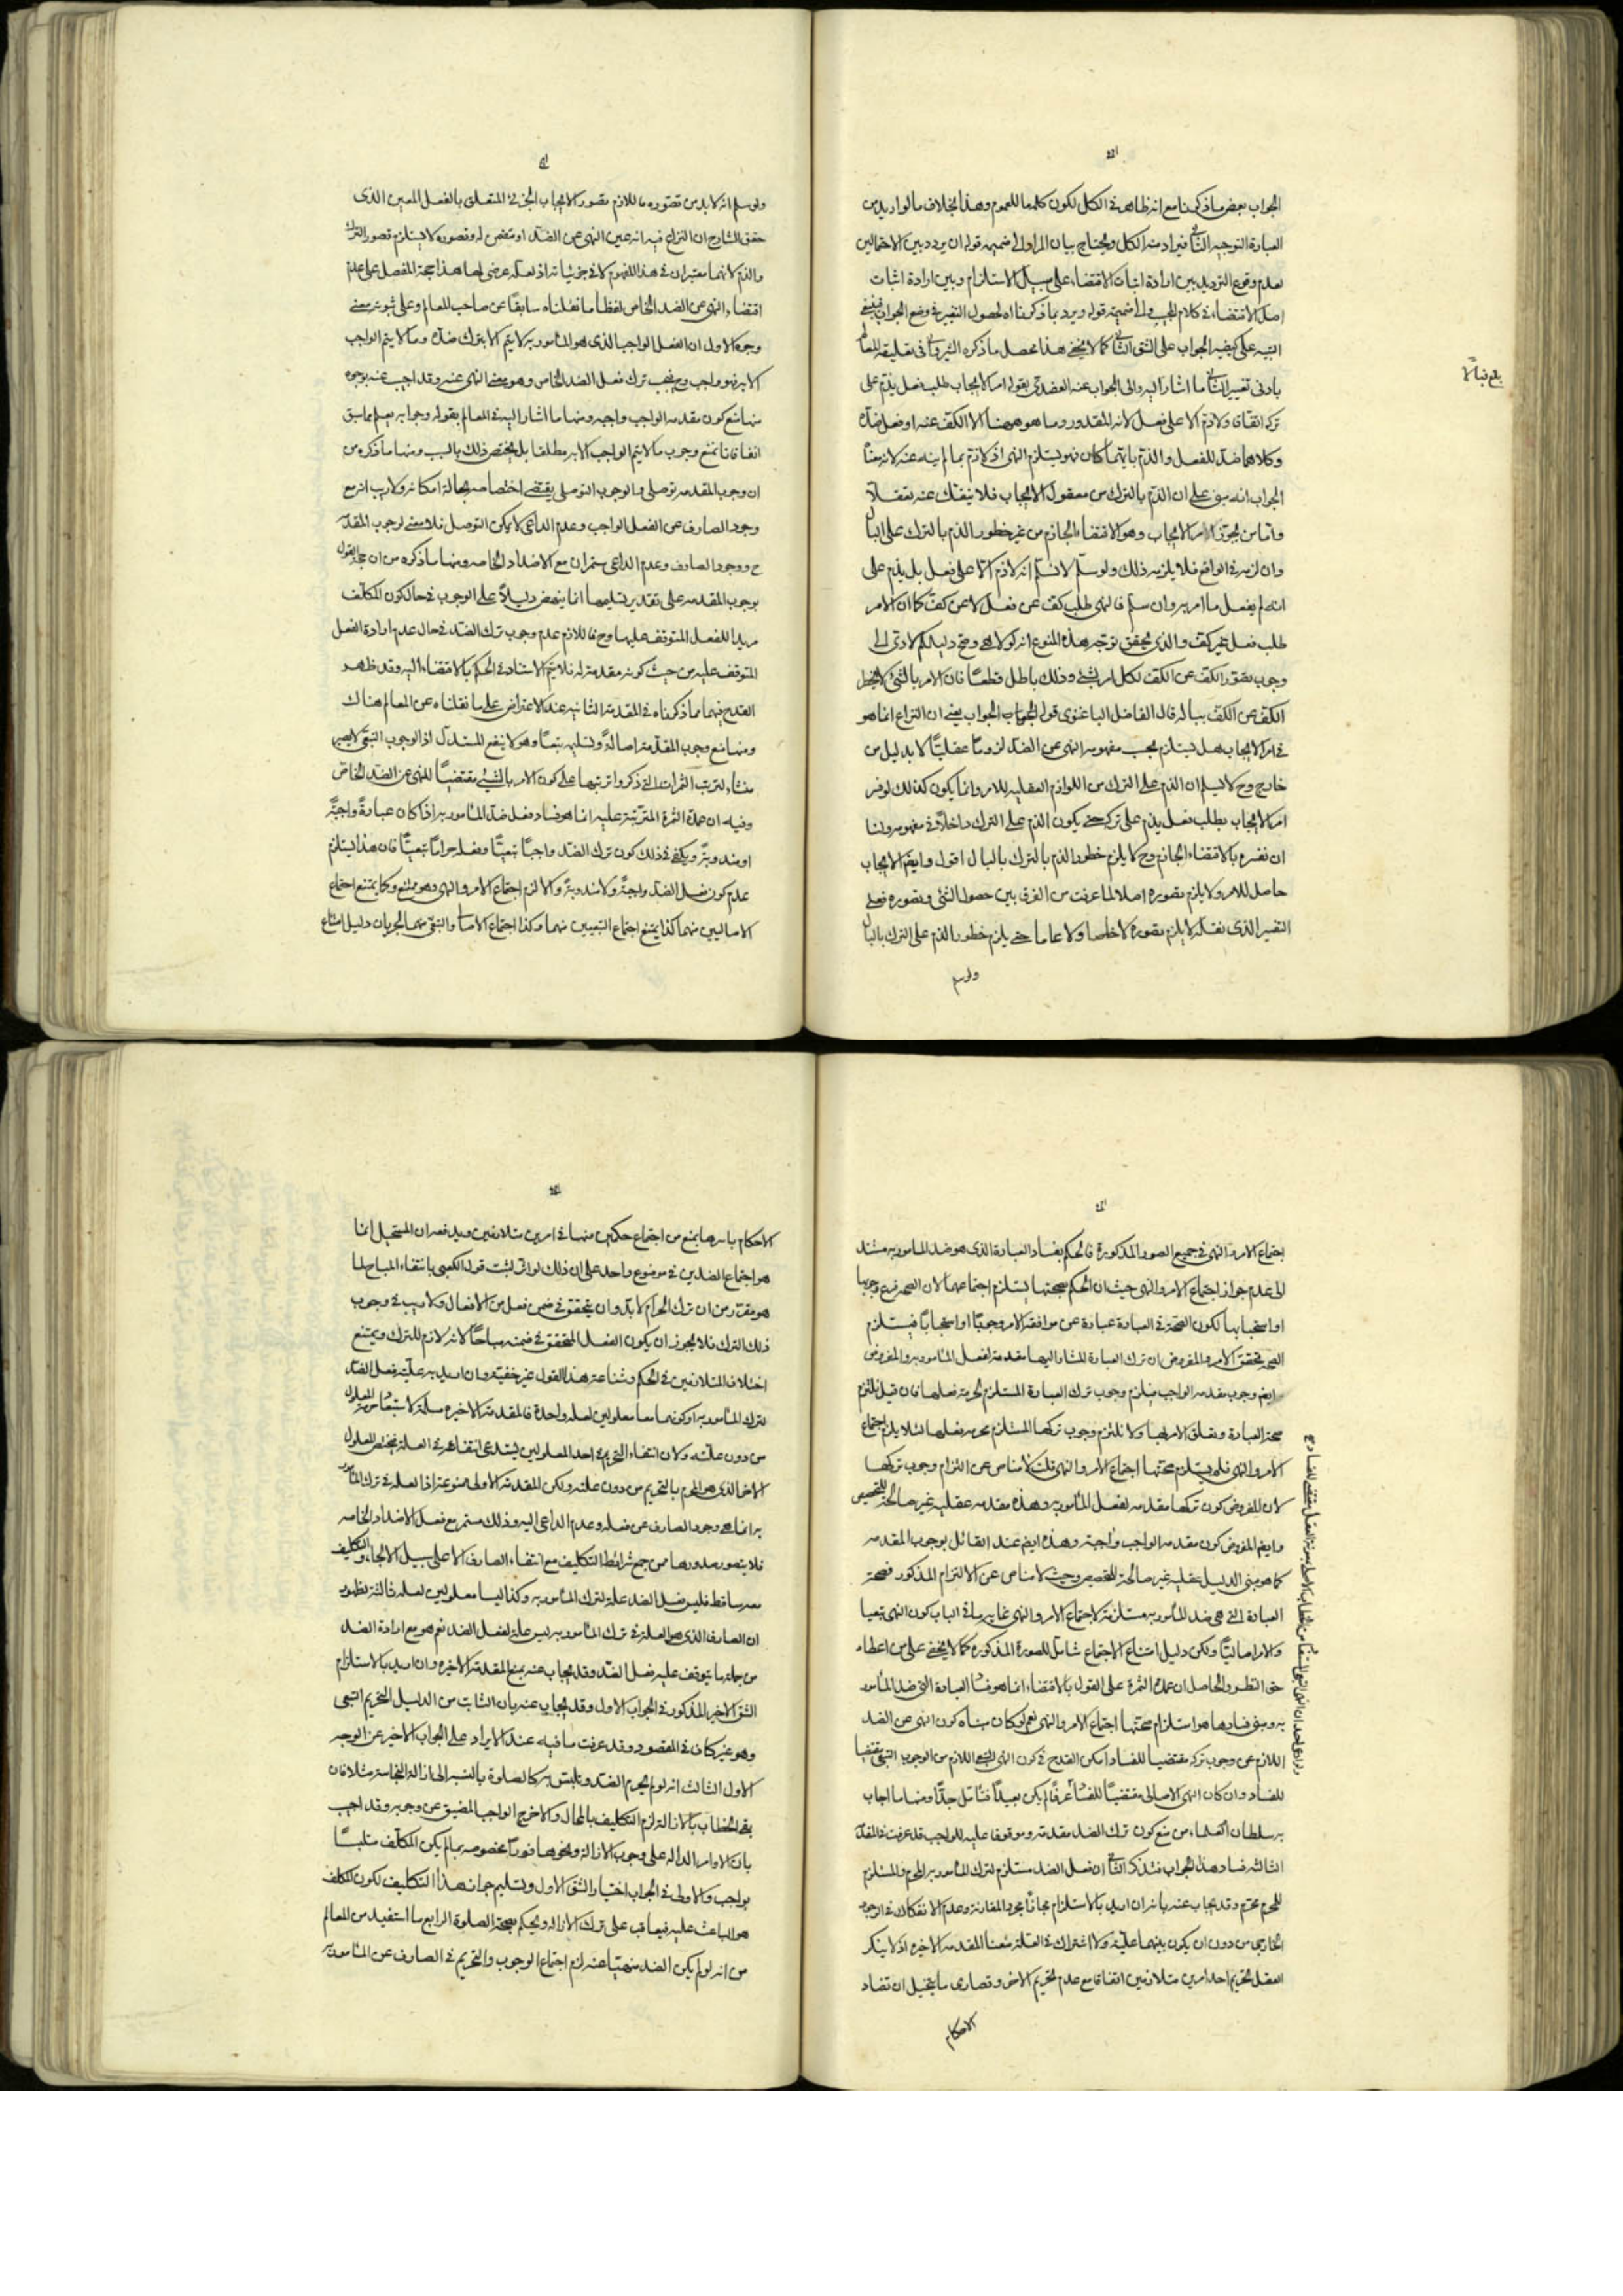 الجواب بعض ما ذكرنا مع انه ظاهر في الكل لكون كلمة ما للعموم وهذا بخلاف ما لو اريد من
العبارة التوجيه الثاني فيراد منه الكل ويحتاج بيان المراد الى ضميمه قوله ان يردد بين الاحتمالين
لعدم وقوع الترديد بين ارادة اثبات الاقتضاء على سبيل الاستلزام وبين ارادة اثبات
اصل الاقتضاء في كلام المجيب
التنبيه على كيفيه الجواب على الشق الثاني كما لا يخفى هذا محصل ما ذكره الشيرواني في تعليقه المعالم
بادنى تغيير الثاني ما اشار اليه والى الجواب عنه العضدي بقوله امر الايجاب طلب فعل يذم على
تركه اتفاقا ولا ذم الا على فعل لانه المقدور وما هو ههنا الا الكف عنه او فعل ضده
وكلاهما ضد للفعل والذم بايهما كان فهو يستلزم النهي اذ لا ذم بما لم ينه عنه لانه معناه
الجواب انه مبني على ان الذم بالترك من معقول الايجاب فلا ينفك عنه تعقلا
واما من يجوز الايجاب وهو الاقتضاء الجازم من غير خطور الذم بالترك على البال
وان لزمه في الواقع فلا يلزمه ذلك ولو سلم لا نسلم انه لا ذم الا على فعل بل يذم على
انه لم يفعل ما امر به وان سلم فالنهي طلب كف عن فعل لا عن كف كما ان الامر
طلب فعل غير كف والذي يحقق توجه هذه المنوع انه لولاها وصح دليلكم لادى الى
وجوب تصور الكف عن الكف لكل امر بشيء وذلك باطل قطعا فان الامر بالشيء لا يخطر
الكف عن الكف بباله قال الفاضل الباغنوي قوله الجواب يعني ان النزاع انما هو
في امر الايجاب هل يستلزم بحسب مفهومه النهي عن الضد لزوما عقليا لا بدليل من
خارج وح لا نسلم ان الذم على الترك من اللوازم العقليه للامر وانما يكون كذلك لو فسر
امر الايجاب بطلب فعل يذم على تركه حتى يكون الذم على الترك داخلا في مفهومه ولنا
ان نفسره بالاقتضاء الجازم وح لا يلزم خطور الذم بالترك بالبال اقول وايضا الايجاب
حاصل للامر ولا يلزم تصوره اصلا لما عرفت من الفرق بين حصول الشيء وتصوره فعلى
التفسير الذي نقله لا يلزم تصوره لا خاصا ولا عاما حتى يلزم خطور الذم على الترك بالبال
ولو سلم
ولو سلم انه لا بد من تصوره فاللازم تصور الايجاب الجزئي المتعلق بالفعل المعين الذي
حقق الشارح ان النزاع فيه انه عين النهي عن الضد او متضمن له وتصوره لا يستلزم تصور الترك
والذم لانهما معتبران في هذا المفهوم لا في جزئياته اذ لعله عرضي لها هذا حجة المفصل على عدم
اقتضاء النهي عن الضد الخاص لفظا ما نقلناه سابقا عن صاحب المعالم وعلى ثبوته معنى
وجوه الاول ان الفعل الواجب الذي هو المأمور به لا يتم الا بترك ضده وما لا يتم الواجب
الا به فهو واجب وح فيجب ترك فعل الضد الخاص وهو معنى النهي عنه وقد اجيب عنه بوجوه
منها منع كون مقدمه الواجب واجبه ومنها ما اشار اليه في المعالم بقوله وجوابه يعلم مما سبق
انفا فانا نمنع وجوب ما لا يتم الواجب الا به مطلقا بل يختص ذلك بالسبب ومنها ما ذكره من
ان وجوب المقدمه توصلي والوجوب التوصلي يقتضي اختصاصه بحالة امكانه ولا ريب انه مع
وجود الصارف عن الفعل الواجب وعدم الداعي لا يمكن التوصل فلا معنى لوجوب المقدمه
ح ووجود الصارف وعدم الداعي مستمران مع الاضداد الخاصه ومنها ما ذكره من ان حجة القول
بوجوب المقدمه على تقدير تسليمها انما ينهض دليلا على الوجوب في حال كون المكلف
مريدا للفعل المتوقف عليها وح فاللازم عدم وجوب ترك الضد في حال عدم ارادة الفعل
المتوقف عليه من حيث كونه مقدمة له فلا يتم الاستناد في الحكم بالاقتضاء اليه وقد ظهر
القدح فيهما مما ذكرناه في المقدمة الثانيه عند الاعتراض على ما نقلناه عن المعالم هناك
ومنها منع وجوب المقدمة اصالة وتسليمه تبعا وهو لا ينفع المستدل اذ الوجوب التبعي لا يصير
منشاء لترتب الثمرات التي ذكروا ترتبها على كون الامر بالشيء مقتضيا للنهي عن الضد الخاص
وفيه ان عمدة الثمرة المترتبة عليه انما هو فساد فعل ضد المأمور به اذا كان عبادة واجبة
او مندوبة ويكفي في ذلك كون ترك الضد واجبا تبعيا وفعله حراما تبعيا فان هذا يستلزم
عدم كون فعل الضد واجبة ولا مندوبة والا لزم اجتماع الامر والنهي وهو ممتنع وكما يمتنع اجتماع
الاصاليين منهما كذا يمتنع اجتماع التبعيين منهما وكذا اجتماع الاصالي والتبعي منهما لجريان دليل امتناع
اجتماع الامر والنهي في جميع الصور المذكورة فالحكم بفساد العبادة الذي هو ضد المأمور به مستند
الى عدم جواز اجتماع الامر والنهي حيث ان الحكم بصحتها يستلزم اجتماعهما لان الصحه فرع وجوبها
او استحبابها لكون الصحة في العبادة عبارة عن موافقة الامر وجوبا او استحبابا فيستلزم
الصحه تحقق الامر والمفروض ان ترك العبادة المشار اليها مقدمة لفعل المأمور به والمفروض
ايضا وجوب مقدمه الواجب فيلزم وجوب ترك العبادة المستلزم لحرمة فعلها فان قيل نلتزم
صحة العبادة وتعلق الامر بها ولا نلتزم وجوب تركها المستلزم لحرمه فعلها لئلا يلزم اجتماع
الامر والنهي فلم يستلزم صحتها اجتماع الامر والنهي قلت لا مناص عن التزام وجوب تركها
لان المفروض كون تركها مقدمه لفعل المأمور به وهذه مقدمه عقليه غير صالحة للتخصيص
وايضا المفروض كون مقدمه الواجب واجبة وهذه ايضا عند القائل بوجوب المقدمه
كما هو مبنى الدليل عقليه غير صالحة للتخصيص وحيث لا مناص عن الالتزام المذكور فصحة
العبادة التي هي ضد المأمور به مستلزمة لاجتماع الامر والنهي غاية ما في الباب كون النهي تبعيا
والامر اصاليا ولكن دليل امتناع الاجتماع شامل للصورة المذكوره كما لا يخفى على من اعطاه
حق النظر والحاصل ان عمدة الثمرة على القول بالاقتضاء انما هو فساد العبادة التي ضد المأمور
به ومبنى فسادها هو استلزام صحتها اجتماع الامر والنهي نعم لو كان مبناه كون النهي عن الضد
اللازم عن وجوب تركه مقتضيا للفساد امكن القدح في كون النهي التبعي اللازم من الوجوب التبعي مقتضيا
للفساد وان كان النهي الاصالي مقتضيا للفساد عرفا لم يكن بعيدا فتامل جدا ومنها ما اجاب
به سلطان العلماء من منع كون ترك الضد مقدمة وموقوفا عليه للواجب قد عرفت في المقدمة
الثالثه فساد هذا الجواب فتذكر الثاني ان فعل الضد مستلزم لترك المأمور به المحرم والمستلزم
للمحرم محرم وقد يجاب عنه بانه ان اريد بالاستلزام مجانا مجرد المقارنة وعدم الانفكاك في الوجود
الخارجي من دون ان يكون بينهما علية ولا اشتراك في العلة منعنا المقدمه الاخيره اذ لا ينكر
العقل تحريم احد امرين متلازمين اتفاقا مع عدم تحريم الاخر وقصارى ما يتخيل ان تضاد
الاحكام
الاحكام باسرها يمنع من اجتماع حكمين منها في امرين متلازمين ويدفعه ان المستحيل انما
هو اجتماع الضدين في موضوع واحد على ان ذلك لو اثر لثبت قول الكعبي بانتفاء المباح لما
هو مقرر من ان ترك الحرام لا بد وان يتحقق في ضمن فعل من الافعال ولا ريب في وجوب
ذلك الترك فلا يجوز ان يكون الفعل المتحقق في ضمنه مباحا لانه لازم للترك ويمتنع
اختلاف المتلازمين في الحكم وشناعة هذا القول غير خفية وان اريد به علية فعل الضد
لترك المأمور به او كونهما معا معلولين لعلة واحدة فالمقدمة الاخيره مسلمة لاستبعاد تحريم المعلول
من دون علته ولان انتفاء التحريم في احد المعلولين يستدعي انتفاءه في العلة فيختص المعلول
الاخر الذي هو المحرم بالتحريم من دون علته ولكن المقدمة الاولى ممنوعة اذ العلة في ترك المأمور
به انما هي وجود الصارف عن فعله وعدم الداعي اليه وذلك مستمر مع فعل الاضداد الخاصه
فلا يتصور صدورها ممن جمع شرائط التكليف مع انتفاء الصارف الا على سبيل الالجاء والتكليف
معه ساقط فليس فعل الضد علة لترك المأمور به وكذا ليسا معلولين لعلة ثالثة لظهور
ان الصارف الذي هو العلة في ترك المأمور به ليس علة لفعل الضد نعم هو مع ارادة الضد
من جملة ما يتوقف عليه فعل الضد وقد يجاب عنه بمنع المقدمة الاخيره وان اريد بالاستلزام
الشق الاخير المذكور في الجواب الاول وقد يجاب عنه بان الثابت من الدليل التحريم التبعي
وهو غير كاف في المقصود وقد عرفت ما فيه عند الايراد على الجواب الاخير عن الوجه
الاول الثالث انه لو لم يحرم الضد وتلبس به كالصلوة بالنسبه الى ازالة النجاسة مثلا فان
بقي الخطاب بالازالة لزم التكليف بالمحال والا خرج الواجب المضيق عن وجوبه وقد اجيب
بان الاوامر الداله على وجوب الازالة ونحوها فورا مخصوصه بما لم يكن المكلف متلبسا
بواجب والاولى في الجواب اختيار الشق الاول وتسليم جواز هذا التكليف لكون المكلف
هو الباعث عليه فيعاقب على ترك الازاله ويحكم بصحة الصلوة الرابع ما استفيد من المعالم
من انه لو لم يكن الضد منهيا عنه لزم اجتماع الوجوب والتحريم في الصارف عن المأمور به